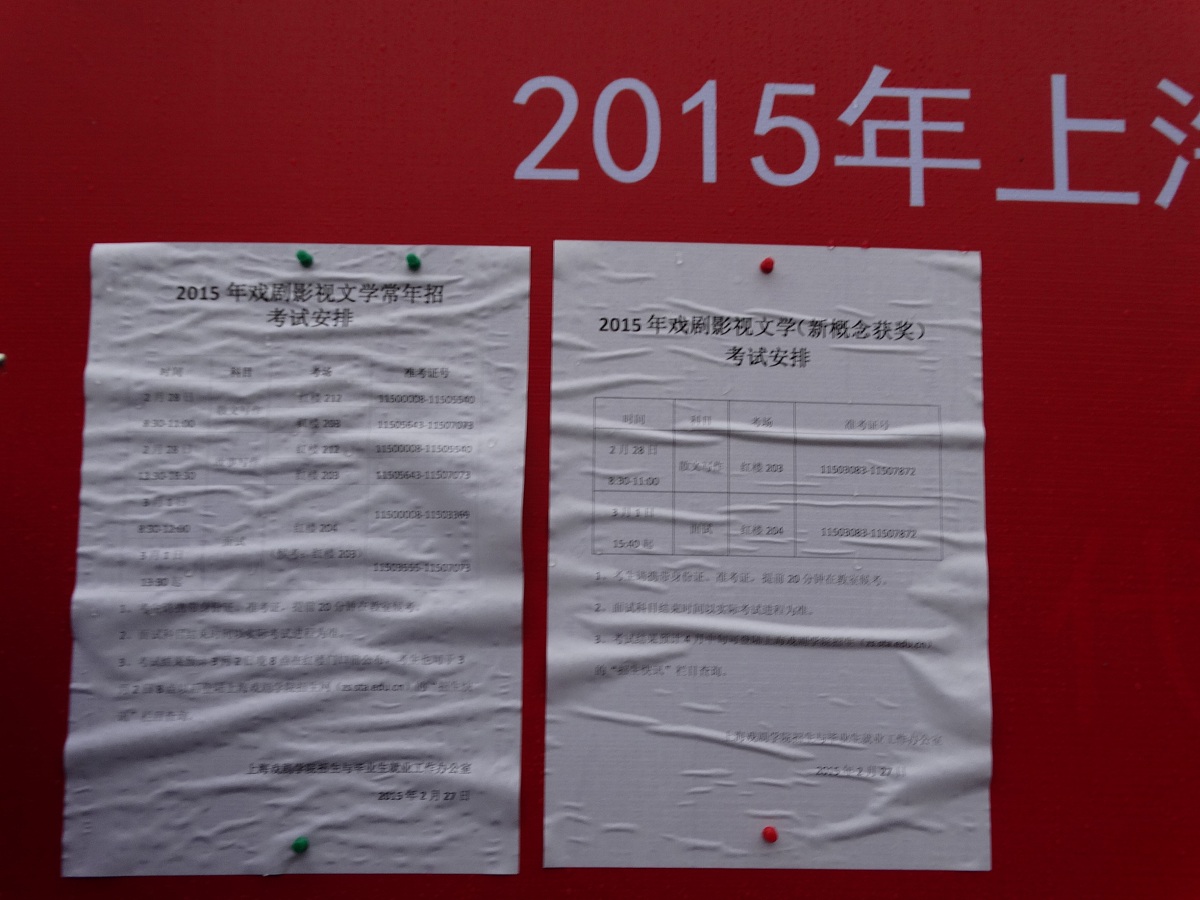 2015年上海
2015 年戏剧影视文学常年招
考试安排
时间 科目 考场 准考证号
2 月 28 日 散文写作 红楼 212 11500008-11505540
8:30-11:00 红楼 203 11505643-11507073
2 月 28 日 红楼 212 11500008-11505540
红楼 203 11505643-11507073
3 月 1 日 11500008-
8:30-12:00 面试 红楼 204
3 月 1 日 (候考:红楼 203)
13:30 起 -11507073
1、考生请携带身份证、准考证,提前 20 分钟在教室候考。
2、面试科目结束时间以实际考试进程为准。
3、考试结果预计 3 月 2 日晚 8 点在红楼门口
上海戏剧学院招生网(zs.sta.edu.cn)的“招生快
讯”栏目查询。
上海戏剧学院招生与毕业生就业工作办公室
2015 年 2 月 27 日
2015 年戏剧影视文学(新概念获奖)
考试安排
时间 科目 考场 准考证号
2 月 28 日
8:30-11:00 散文写作 红楼 203 11503083-11507872
3 月 1 日
15:40 起 面试 红楼 204 11503083-11507872
1、考生请携带身份证、准考证,提前 20 分钟在教室候考。
2、面试科目结束时间以实际考试进程为准。
3、考试结果预计 4 月中旬可登陆上海戏剧学院招生网(zs.sta.edu.cn)
的“招生快讯”栏目查询。
上海戏剧学院招生与毕业生就业工作办公室
2015 年 2 月 27 日